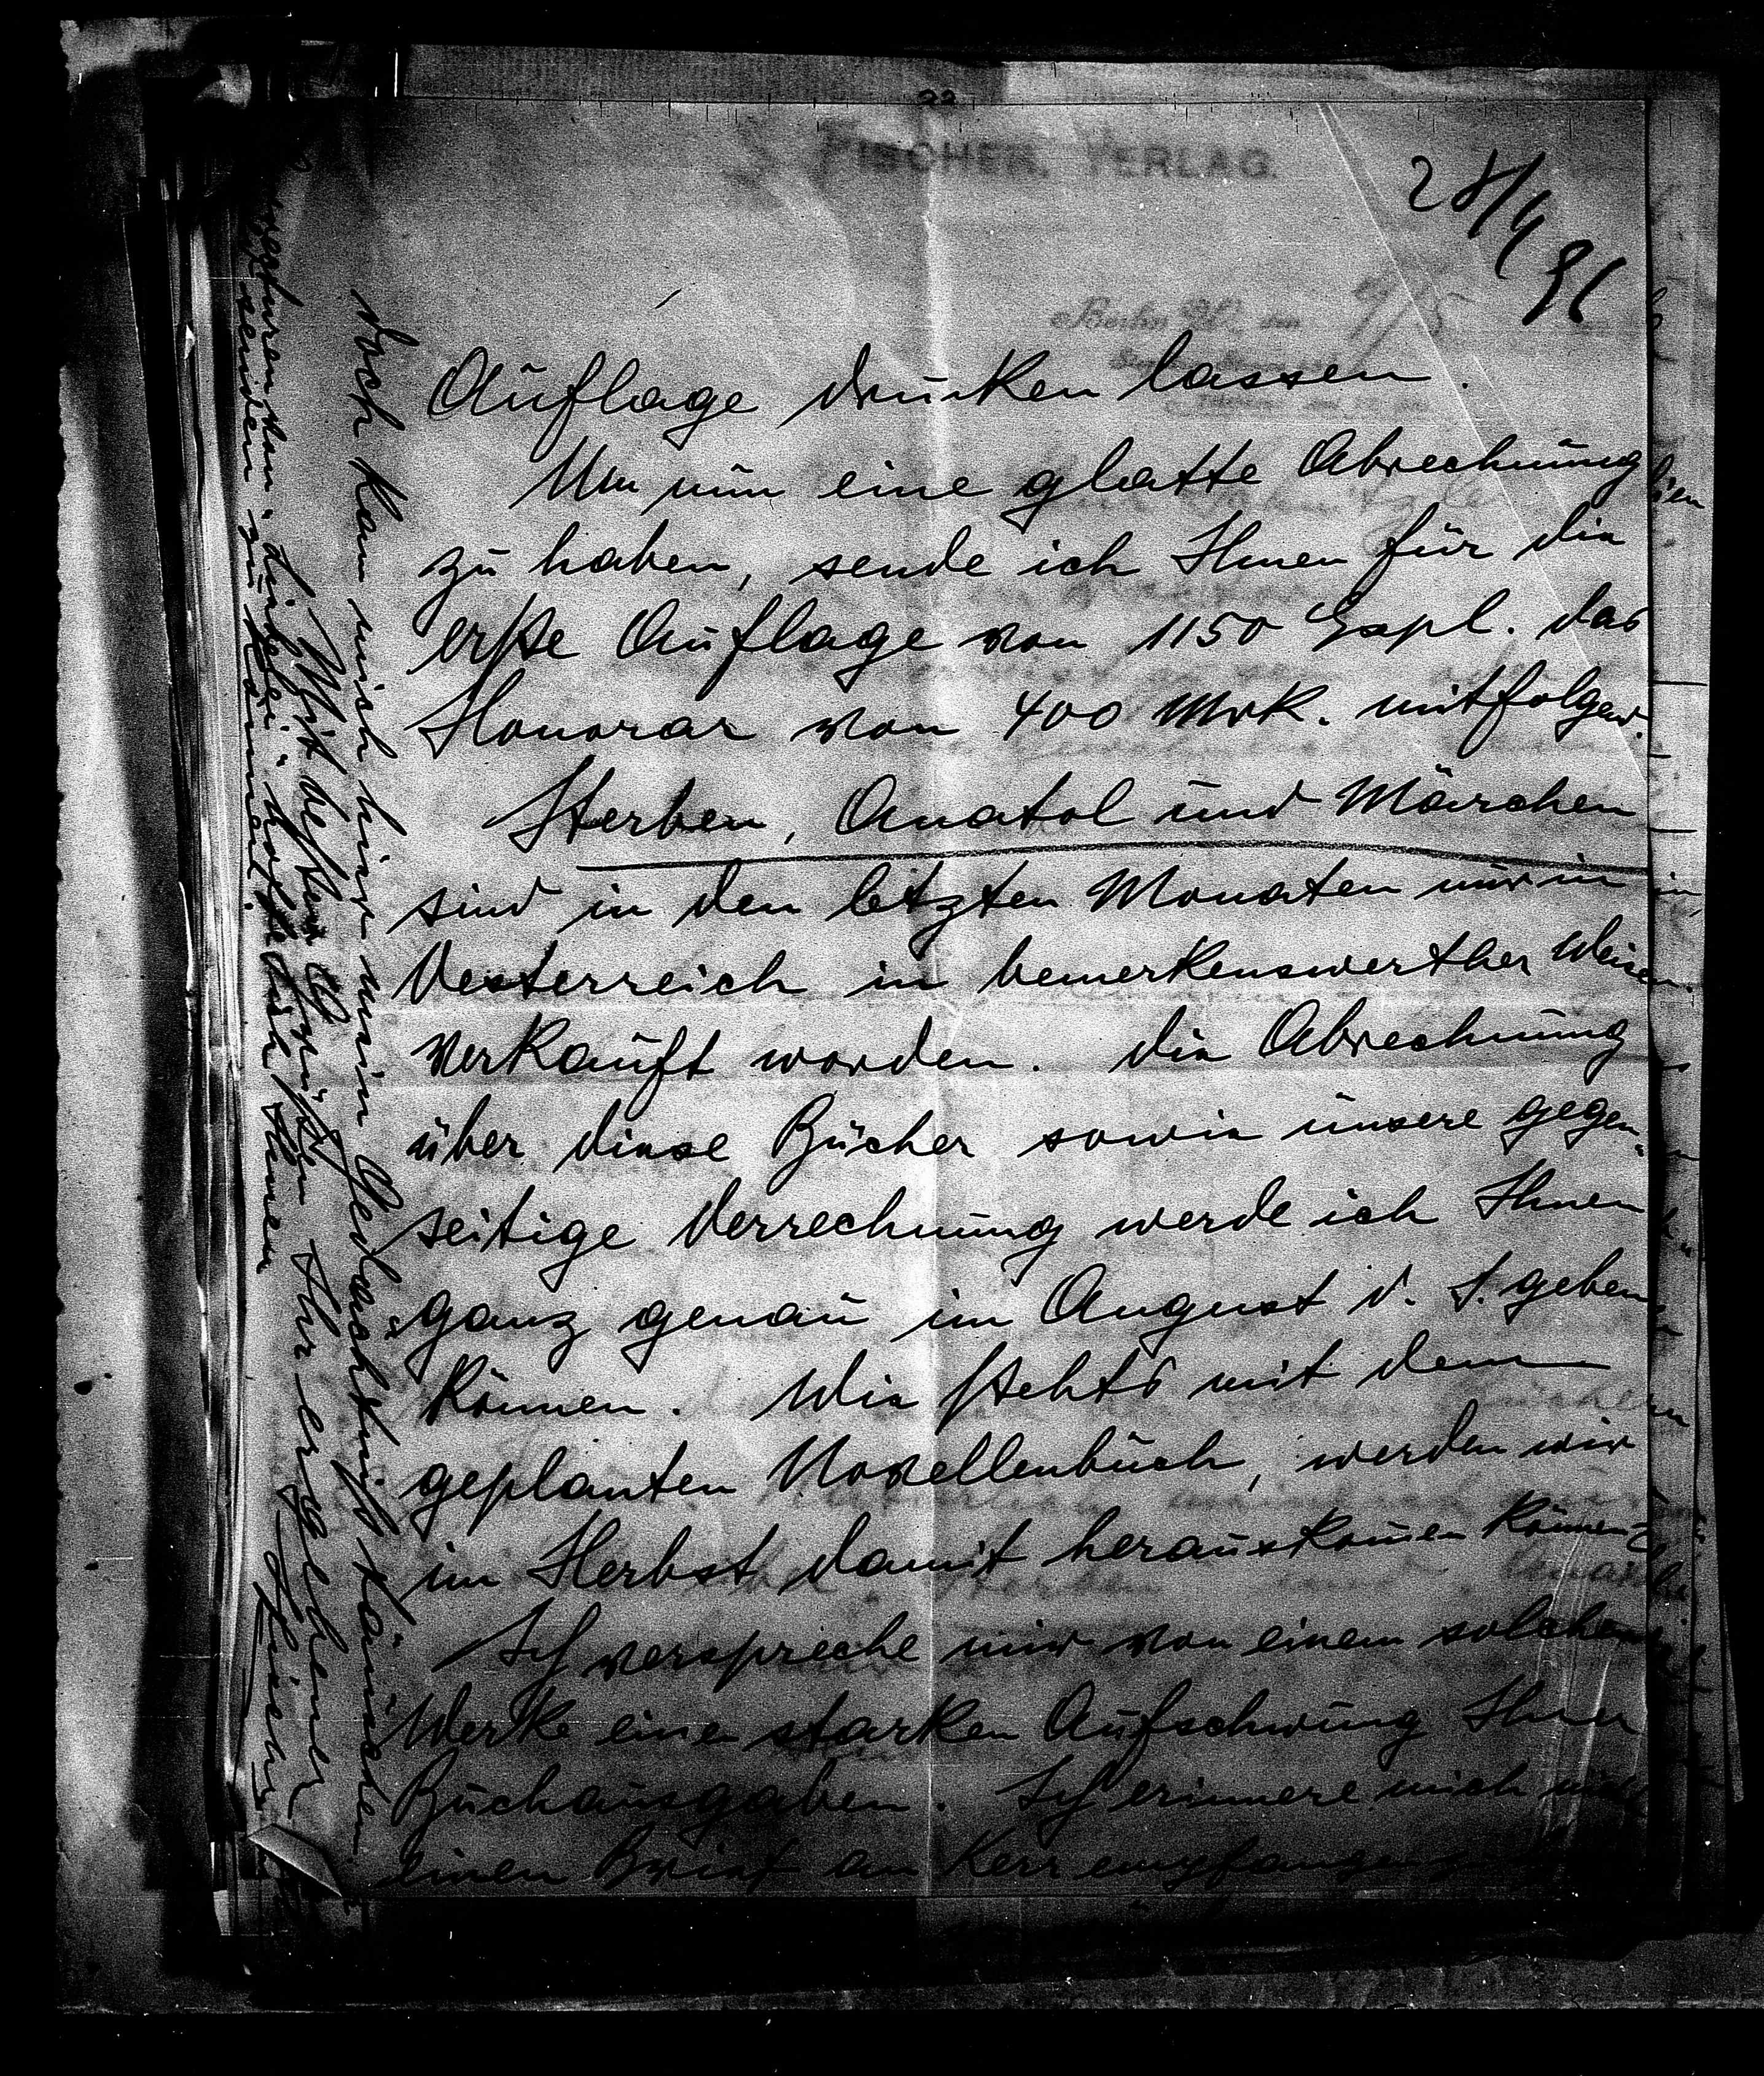 28/4 96
Auflage drucken lassen.
Um nun eine glatte Abrechnung
zu haben, sende ich Ihnen für die
erste Auflage von 1150 Expl. das
Honorar von 400 Mrk. mitfolgend.
Sterben, Anatol und Märchen
sind in den letzten Monaten nur in
Oesterreich in bemerkenswerther Weise
verkauft worden. Die Abrechnung
über diese Bücher sowie unsere gegen-
seitige Verrechnung werde ich Ihnen
ganz genau im August d. J. geben
können. Wie stehts mit dem
geplanten Novellenbuch, werden wir
im Herbst damit herauskom̄en können?
Ich verspreche mir von einem solchen
Werke einen starken Aufschwung Ihrer
Buchausgaben. Ich erinnere mich nicht
einen Brief an Kerr empfangen zu
doch kann mich hier mein Gedächtniß täuschen.
Mit besten Grüßen Ihr ergebener
SFischer
Correcturen von "Liebelei" hoffe ich Ihnen
senden zu können.
FISCHER, VERLAG.
Berlin W., den